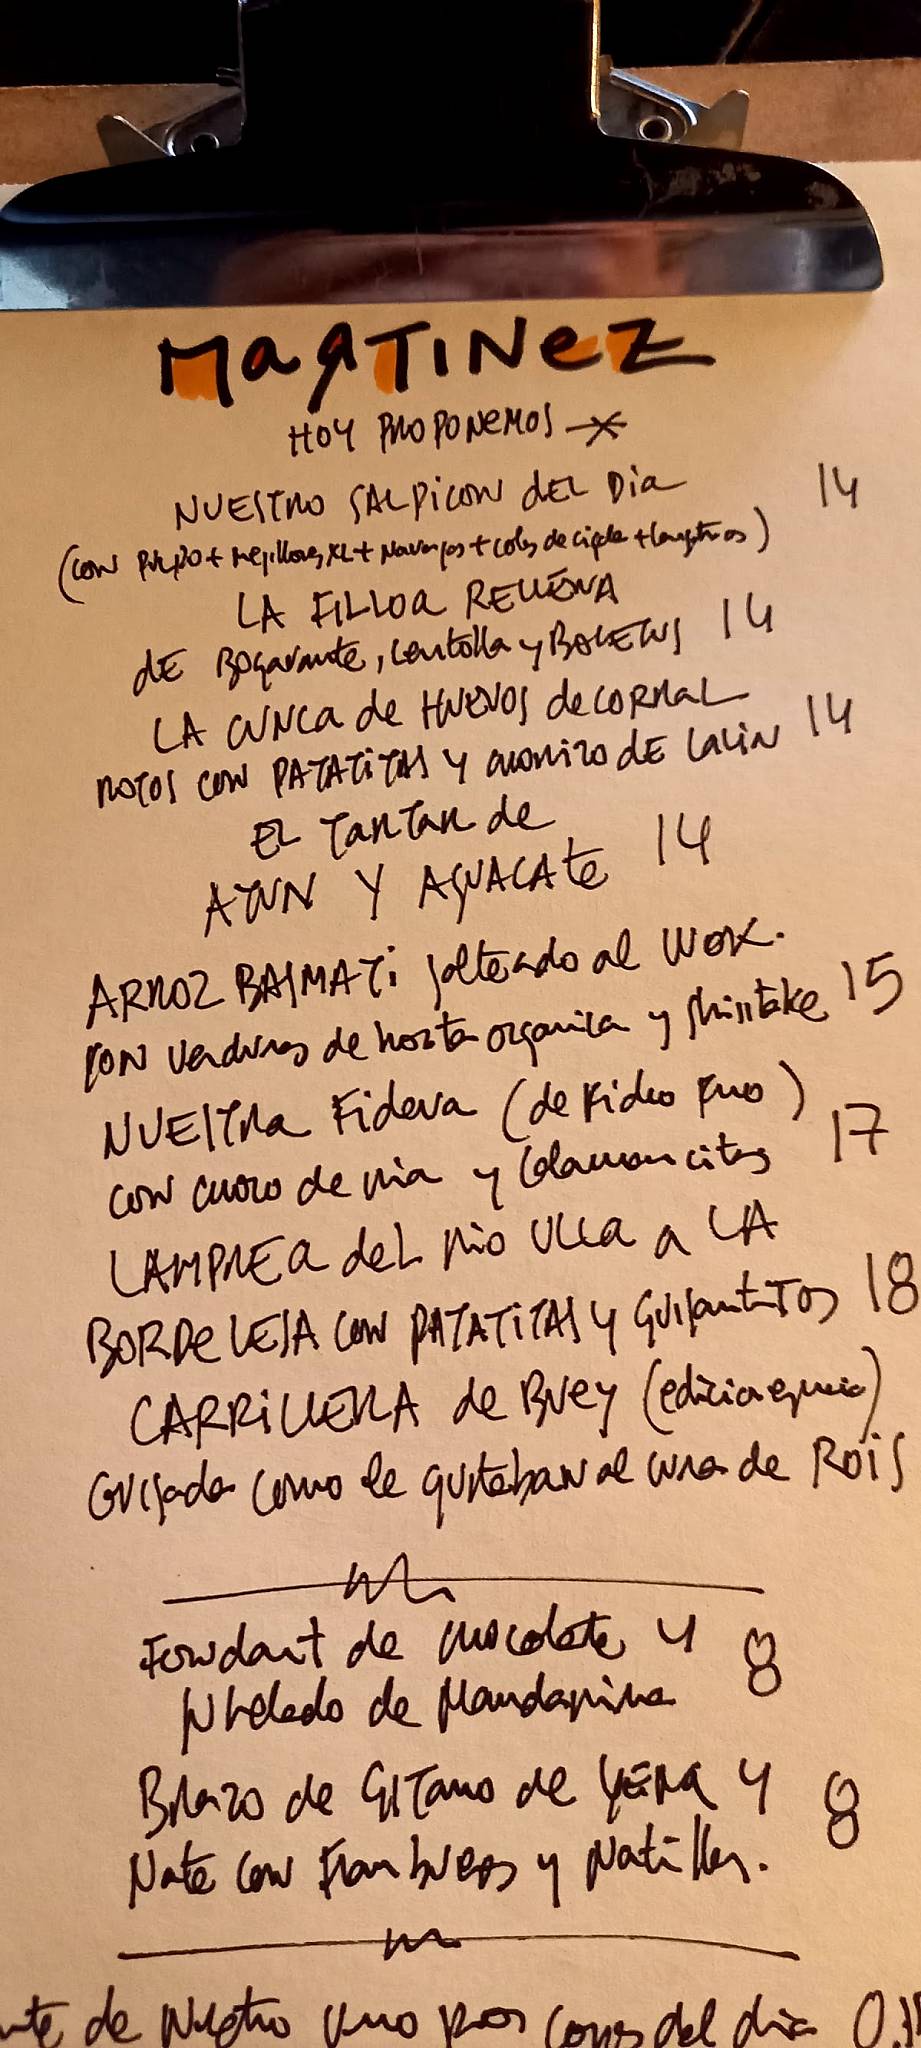 MARTINEZ
HOY PROPONEMOS
NUESTRO SALPICON DEL DIA 14
(CON PULPO + mejillones XL + Navajas + colas de cigala + langostinos)
LA FILLOA RELLENA
DE BOGAVANTE, centolla y BOLETUS 14
LA CUNCA de HUEVOS de CORRAL
ROTOS CON PATATITAS Y CHORIZO DE LALIN 14
EL TARTAR de
ATUN Y AGUACATE 14
ARROZ BASMATI salteado al WOK.
CON verduras de horta organica y shiitake 15
NUESTRA Fideua (de Fideo FINO)
CON choco de ria y Calamarcitos 17
LAMPREA del Rio ULLA a LA
BORDELESA CON PATATITAS y GUISANTITOS 18
CARRILLERA de BUEY
GUISADA como le gustaban al cura de ROIS
Fondant de chocolate y 8
Helado de Mandarina
Brazo de GITANO de YEMA Y 8
Nata con Frambuesas y Natillas.
de Nuestro del dia